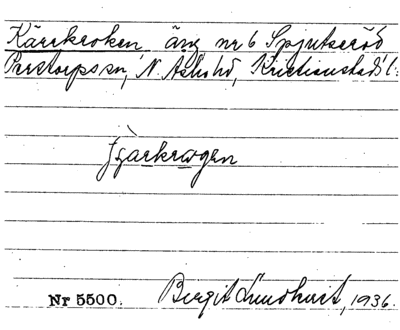 Kärrkroken äng nr 6 Spjutseröd
Perstorps sn, N. Åsbo hd, Kristianstads l:
krogen
Nr 5500. Birgit Lundkvist, 1936.